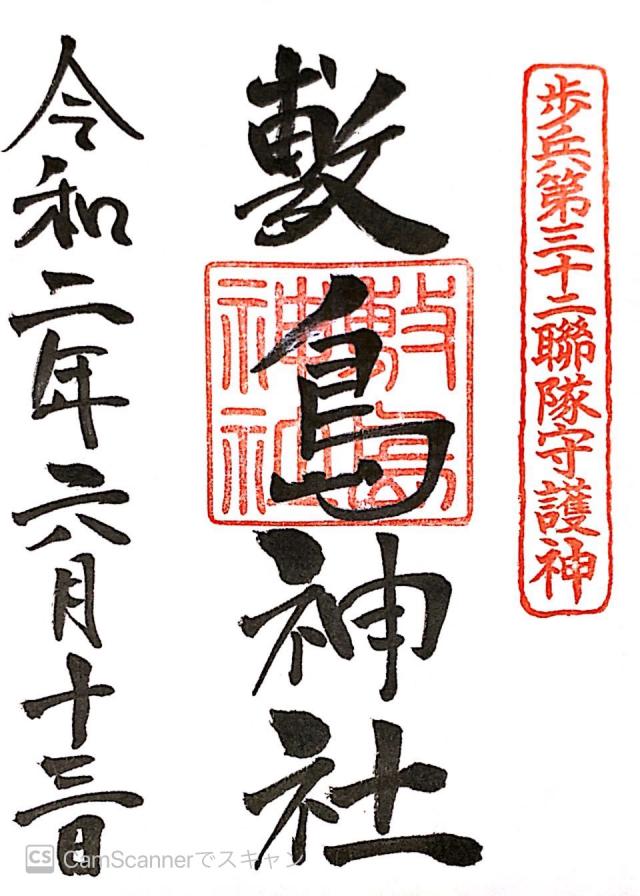 歩兵第三十二聯隊守護神
敷島神社
敷島神社
令和二年六月十三日
CS CamScannerでスキャン